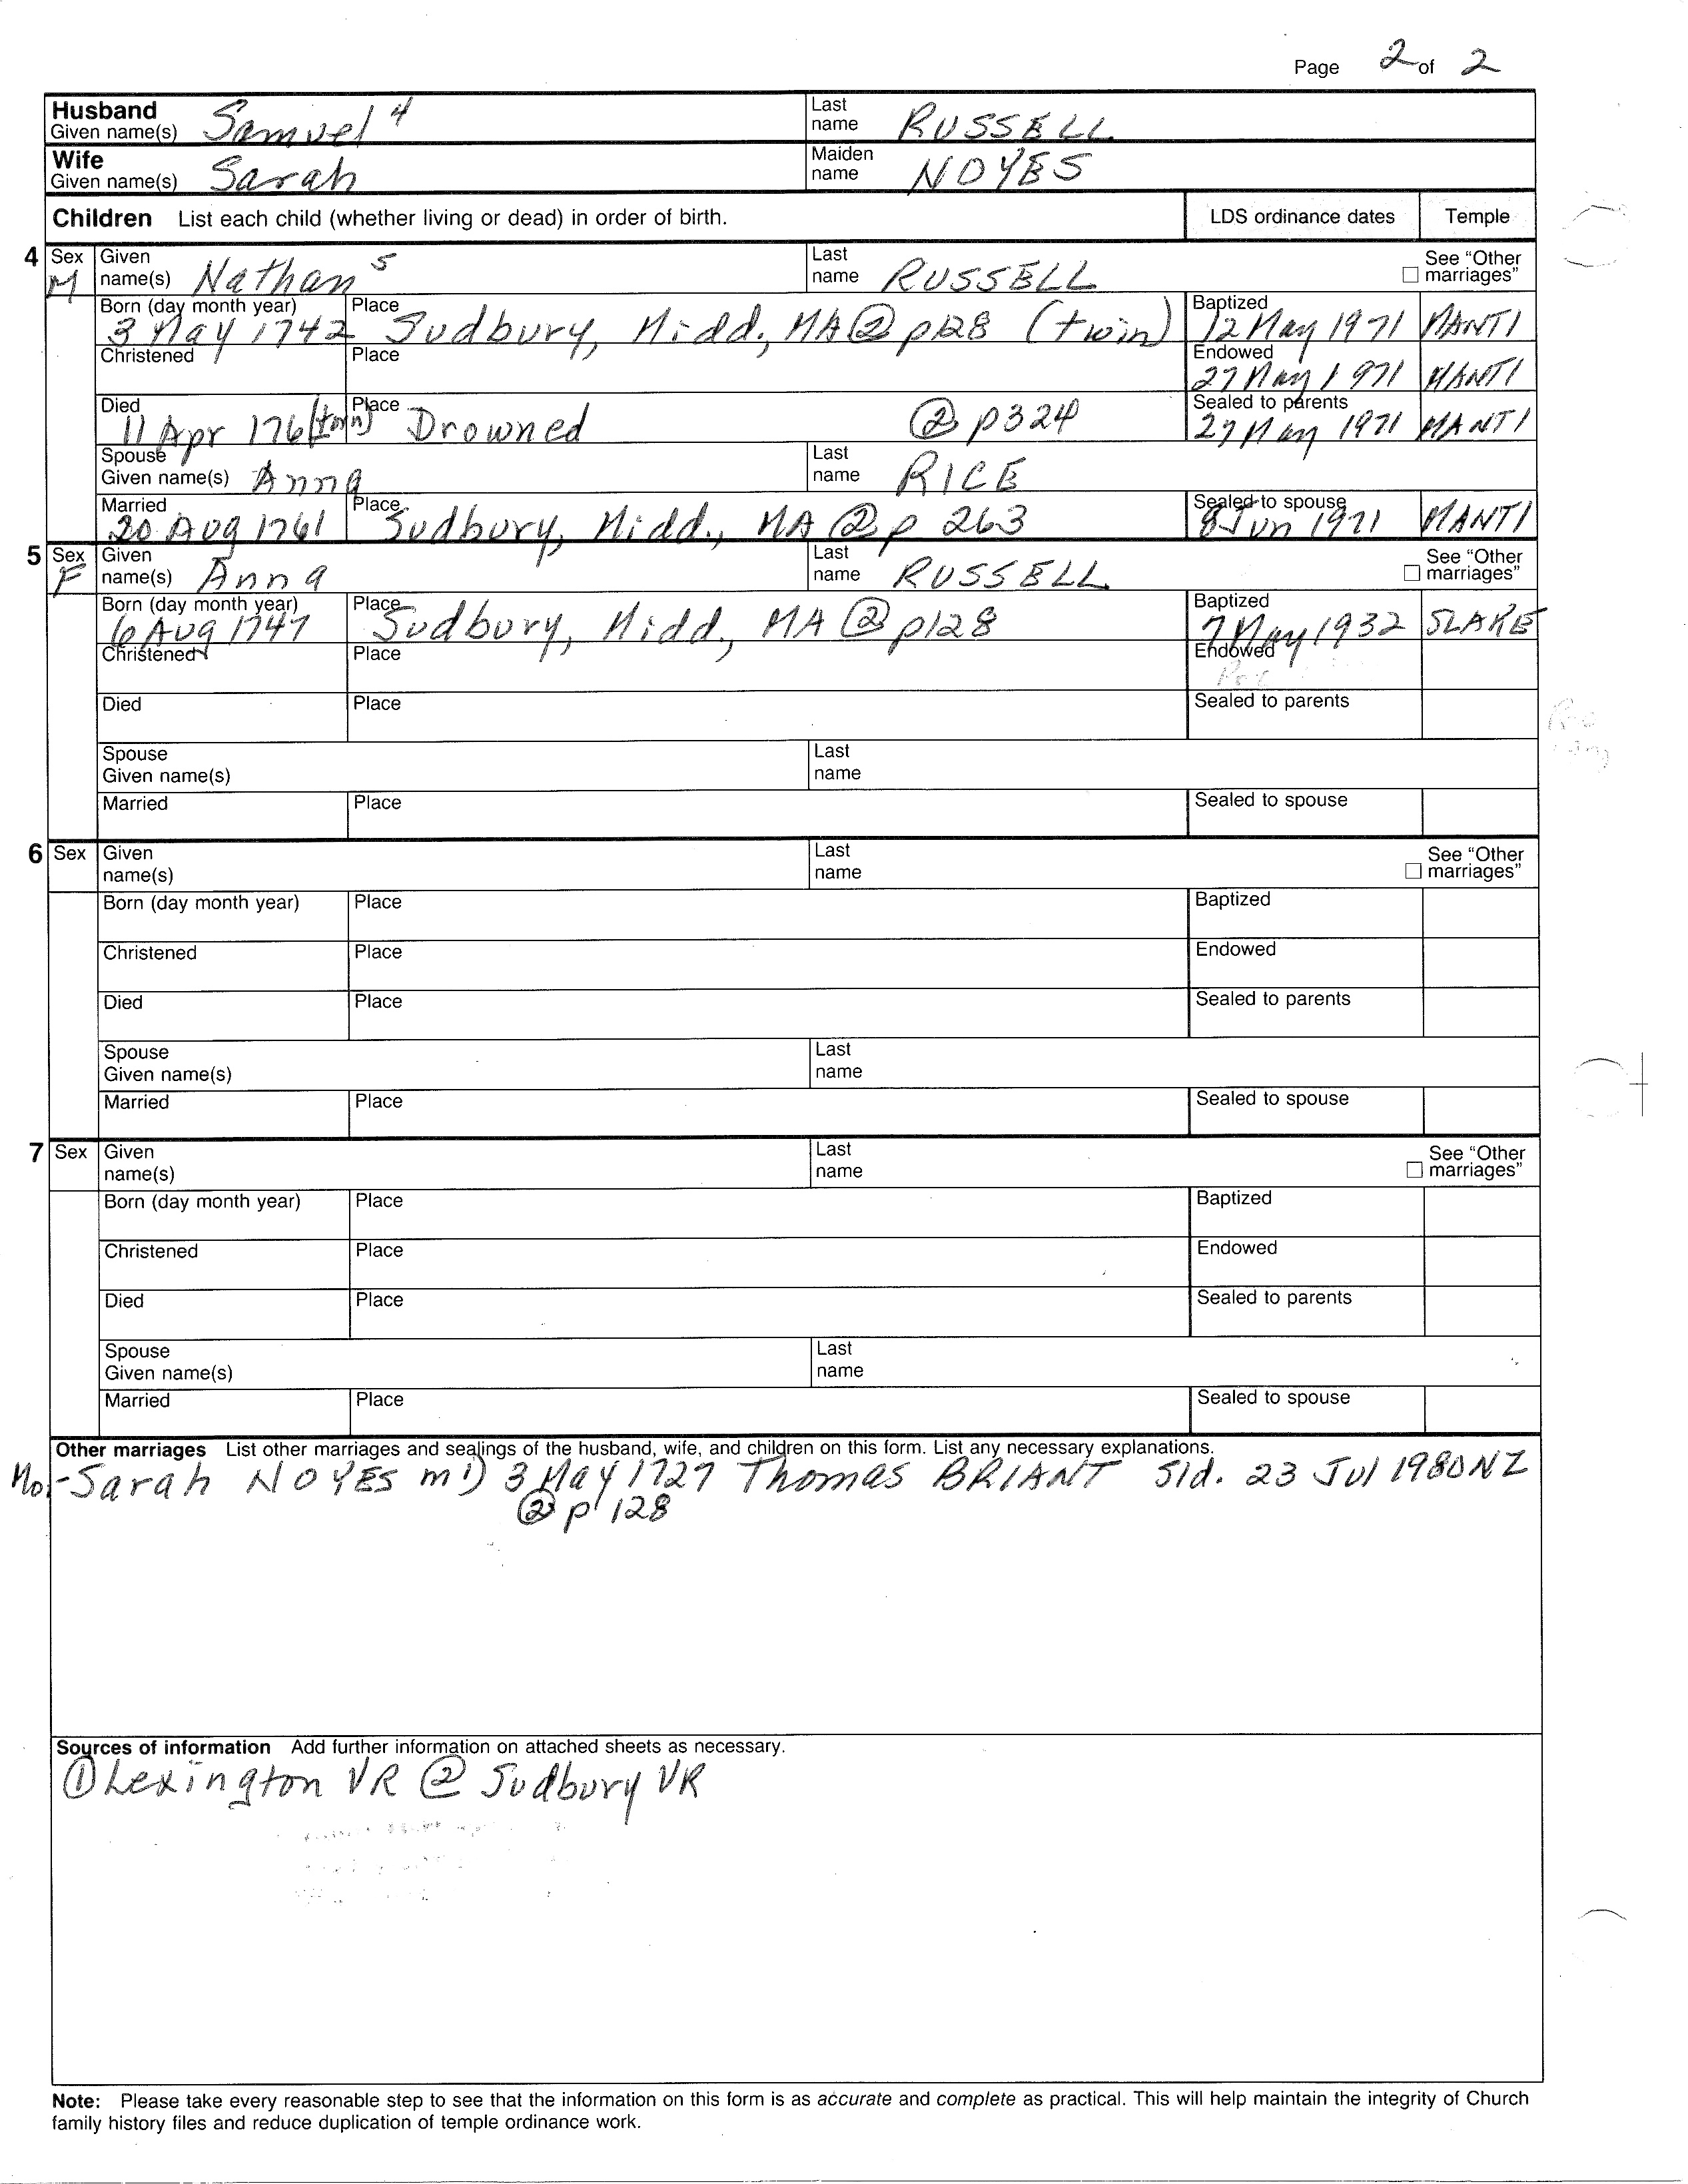 Page 2 of 2
Husband Given name(s) Samuel 4 Last name RUSSELL
Wife Given name(s) Sarah Maiden name NOYES
Children List each child (whether living or dead) in order of birth. LDS ordinance dates Temple
4 Sex M Given name(s) Nathan 5 Last name RUSSELL See "Other marriages"
Born (day month year) 3 May 1742 Place Sudbury, Midd., MA ② p128 (twin) Baptized 12 May 1971 MANTI
Christened Place Endowed 27 May 1971 MANTI
Died 11 Apr 176(torn) Place Drowned ② p324 Sealed to parents 27 May 1971 MANTI
Spouse Given name(s) Anna Last name RICE
Married 20 Aug 1761 Place Sudbury, Midd., MA ② p 263 Sealed to spouse 8 Jun 1971 MANTI
5 Sex F Given name(s) Anna Last name RUSSELL See "Other marriages"
Born (day month year) 6 Aug 1747 Place Sudbury, Midd., MA ② p128 Baptized 7 May 1932 SLAKE
Christened Place Endowed
Died Place Sealed to parents
Spouse Given name(s) Last name
Married Place Sealed to spouse
6 Sex Given name(s) Last name See "Other marriages"
Born (day month year) Place Baptized
Christened Place Endowed
Died Place Sealed to parents
Spouse Given name(s) Last name
Married Place Sealed to spouse
7 Sex Given name(s) Last name See "Other marriages"
Born (day month year) Place Baptized
Christened Place Endowed
Died Place Sealed to parents
Spouse Given name(s) Last name
Married Place Sealed to spouse
Other marriages List other marriages and sealings of the husband, wife, and children on this form. List any necessary explanations.
Mo.-Sarah NOYES m 1) 3 May 1727 Thomas BRIANT Sld. 23 Jul 1980 NZ
② p 128
Sources of information Add further information on attached sheets as necessary.
① Lexington VR ② Sudbury VR
Note: Please take every reasonable step to see that the information on this form is as accurate and complete as practical. This will help maintain the integrity of Church
family history files and reduce duplication of temple ordinance work.